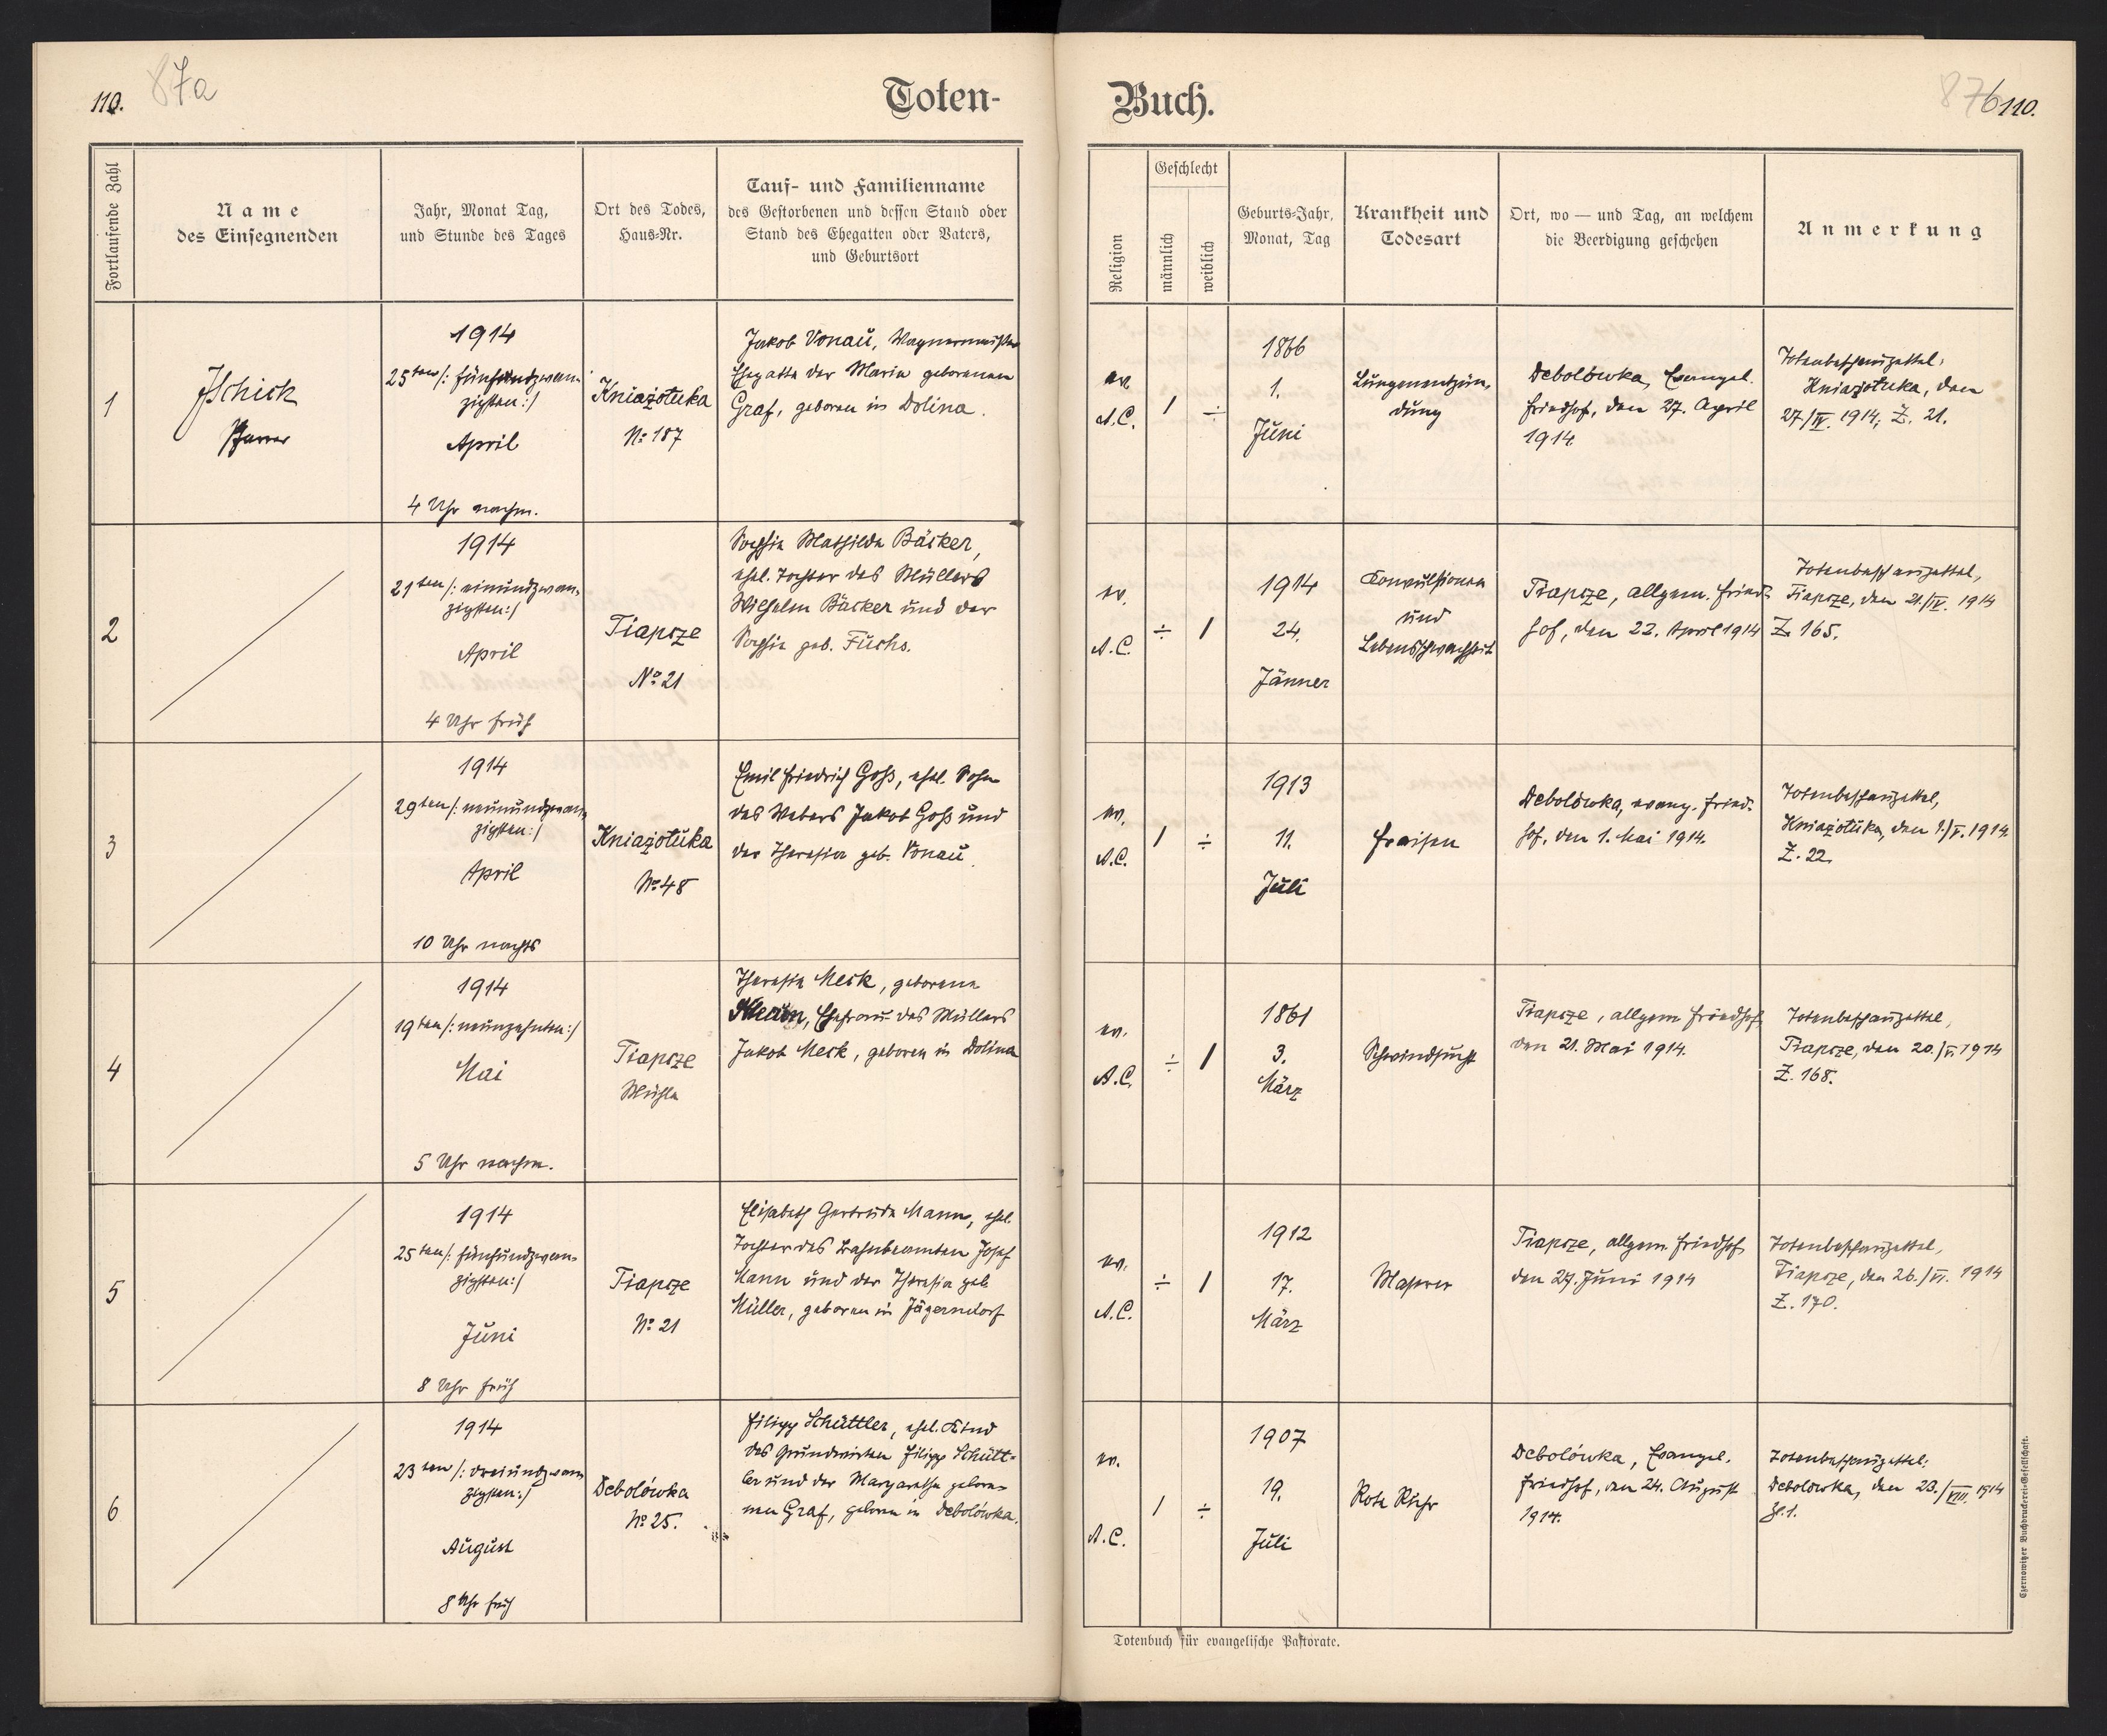 110.
87a
Toten-
Fortlaufende Zahl
Name
des Einsegnenden
Jahr, Monat Tag,
und Stunde des Tages
Ort des Todes,
Haus-Nr.
Tauf- und Familienname
des Gestorbenen und dessen Stand oder
Stand des Ehegatten oder Vaters,
und Geburtsort
1
JSchick
Pfarrer
1914
25ten /: fünfundzwan-
zigsten :/
April
4 Uhr nachm.
Kniażołuka
No 187
Jakob Vonau, Wagnermeister
Ehegatte der Maria geborenen
Graf, geboren in Dolina.
2
1914
21ten /: einundzwan-
zigsten :/
April
4 Uhr früh
Tiapcze
No 21
Sophie Mathilde Bäcker,
ehel. Tochter des Müllers
Wilhelm Bäcker und der
Sophie geb. Fuchs.
3
1914
29ten /: neunundzwan-
zigsten :/
April
10 Uhr nachts
Kniażołuka
No 48
Emil Friedrich Goß, ehel. Sohn
des Webers Jakob Goß und
der Theresia geb. Vonau.
4
1914
19ten /: neunzehnten :/
Mai
5 Uhr nachm.
Tiapcze
Mühle
Theresia Meck, geborene
Ehefrau des Müllers
Jakob Meck, geboren in Dolina
5
1914
25ten /: fünfundzwan-
zigsten :/
Juni
8 Uhr früh
Tiapcze
No 21
Elisabeth Gertrude Mann, ehel.
Tochter des Bahnbeamten Josef
Mann und der Theresia geb.
Müller, geboren in Jägerndorf
6
1914
23ten /: dreiundzwan
zigsten :/
August
8 Uhr früh
Debolówka
No 25.
Filipp Schüttler, ehel. Kind
des Grundwirten Filipp Schütt-
ler und der Margaretha gebore-
nen Graf, geboren in Debolówka.
Buch.
87b
110.
Religion
Geschlecht
männlich
weiblich
Geburts-Jahr,
Monat, Tag
Krankheit und
Todesart
Ort, wo — und Tag, an welchem
die Beerdigung geschehen
Anmerkung
ev.
A.C.
1
÷
1866
1.
Juni
Lungenentzün-
dung
Debolówka, Evangel.
Friedhof, den 27. April
1914
Totenbeschauzettel:
Kniażołuka, den
27./IV. 1914, Z. 21.
ev.
A.C.
÷
1
1914
24.
Jänner
Konvulsionen
und
Lebensschwachheit
Tiapcze, allgem. Fried-
hof, den 22. April 1914
Totenbeschauzettel,
Tiapcze, den 21./IV. 1914
Z. 165.
ev.
A.C.
1
÷
1913
11.
Juli
Fraisen
Debolówka, evang. Fried-
hof, den 1. Mai 1914.
Totenbeschauzettel,
Kniażołuka, den 1./V. 1914.
Z. 22.
ev.
A.C.
÷
1
1861
3.
März
Schwindsucht
Tiapcze, allgem Friedhof
den 21. Mai 1914.
Totenbeschauzettel,
Tiapcze, den 20./V. 1914
Z. 168.
ev.
A.C.
÷
1
1912
17.
März
Masern
Tiapcze, allgem. Friedhof,
den 27. Juni 1914
Totenbeschauzettel,
Tiapcze, den 26./VI. 1914
Z. 170.
ev.
A.C.
1
÷
1907
19.
Juli
Rote Ruhr
Debolówka, Evangel.
Friedhof, den 24. August
1914.
Totenbeschauzettel:
Debolówka, den 23./VIII. 1914
Zl. 1.
Totenbuch für evangelische Pastorate.
Czernowitzer Buchdruckerei-Gesellschaft.